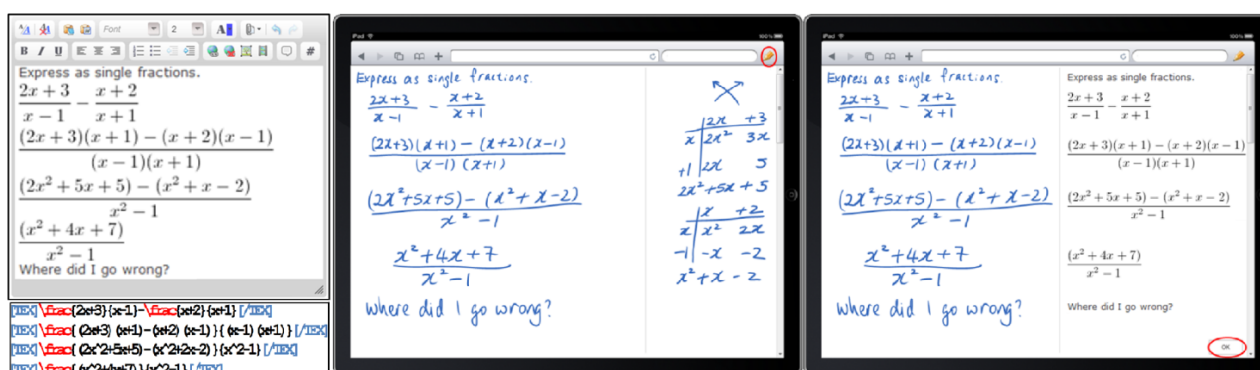 Font 2 A
B I U #
Express as single fractions.
2x + 3 / x − 1 − x + 2 / x + 1
(2x + 3)(x + 1) − (x + 2)(x − 1) / (x − 1)(x + 1)
(2x² + 5x + 5) − (x² + x − 2) / x² − 1
(x² + 4x + 7) / x² − 1
Where did I go wrong?
[TEX]\frac{2x+3}{x-1}-\frac{x+2}{x+1}[/TEX]
[TEX]\frac{(2x+3)(x+1)-(x+2)(x-1)}{(x-1)(x+1)}[/TEX]
[TEX]\frac{(2x^2+5x+5)-(x^2+2x-2)}{x^2-1}[/TEX]
[TEX]\frac{(x^2+4x+7)}{x^2-1}[/TEX]
iPad 100%
Express as single fractions.
2x+3 / x-1 − x+2 / x+1
(2x+3)(x+1) − (x+2)(x-1) / (x-1)(x+1)
(2x²+5x+5) − (x²+x-2) / x²-1
x²+4x+7 / x²-1
Where did I go wrong?
2x +3
x 2x² 3x
+1 2x 5
2x²+5x+5
x +2
x x² 2x
-1 -x -2
x²+x-2
iPad 100%
Express as single fractions.
2x+3 / x-1 − x+2 / x+1
(2x+3)(x+1) − (x+2)(x-1) / (x-1)(x+1)
(2x²+5x+5) − (x²+x-2) / x²-1
x²+4x+7 / x²-1
Where did I go wrong?
Express as single fractions.
2x + 3 / x − 1 − x + 2 / x + 1
(2x + 3)(x + 1) − (x + 2)(x − 1) / (x − 1)(x + 1)
(2x² + 5x + 5) − (x² + x − 2) / x² − 1
(x² + 4x + 7) / x² − 1
Where did I go wrong?
OK